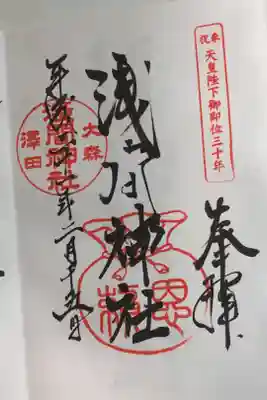 奉祝 天皇陛下御即位三十年
奉拝
浅間神社
大森
浅間神社
澤田
平成三十一年二月十五日